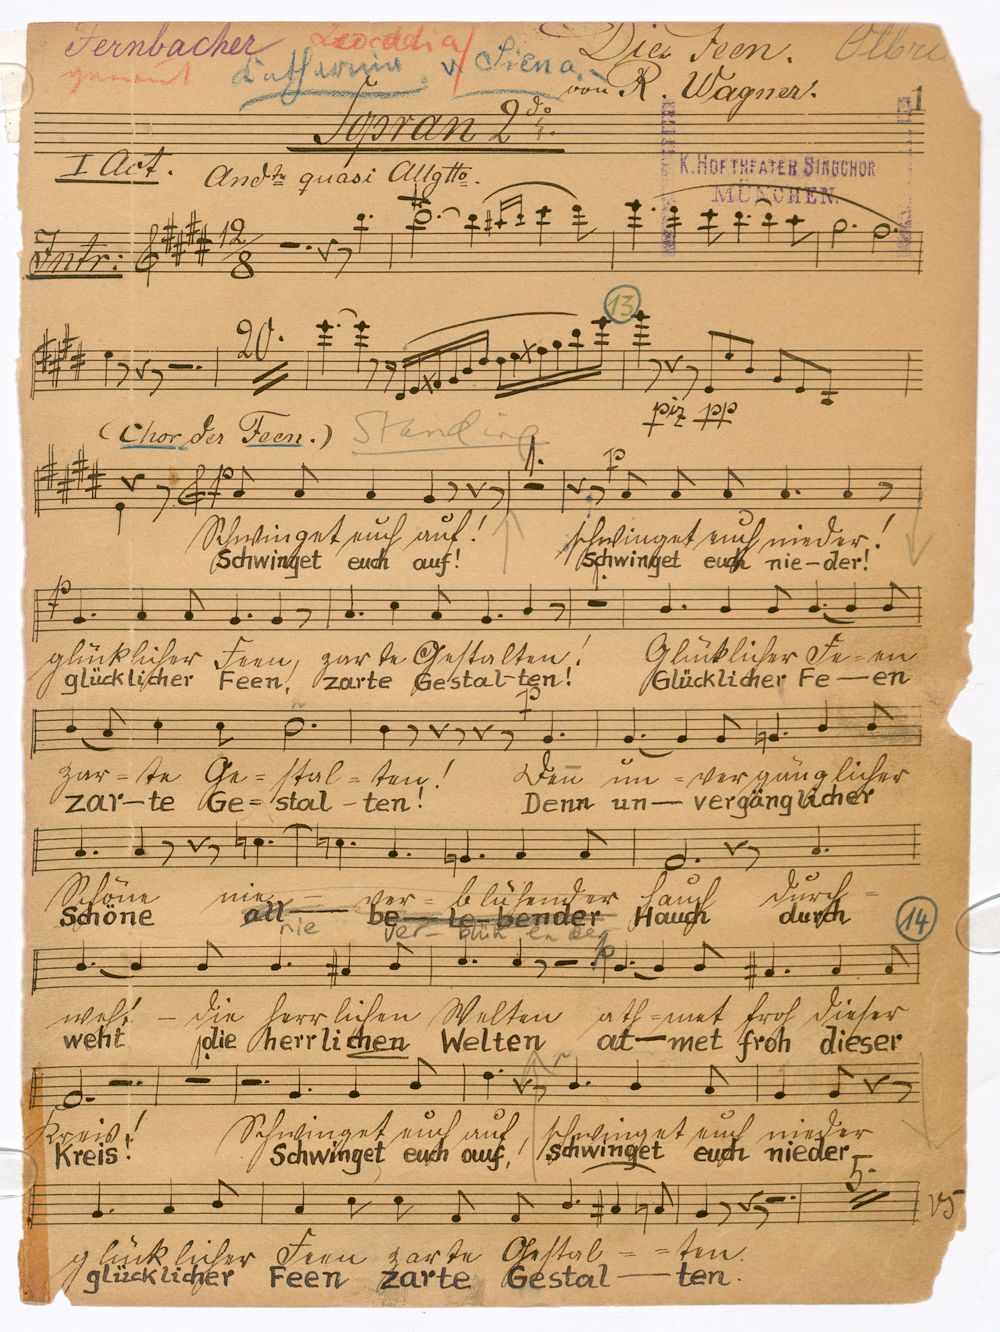 Fernbacher Leocadia Die Feen.
genannt Catharina v Siena von R. Wagner.
1
Sopran 2do
K. HOFTHEATER SINGCHOR
MÜNCHEN.
I Act. Andte quasi Allgtto.
Intr:
12/8
20.
13
piz pp
(Chor der Feen.) Standing
p 1. p
Schwinget euch auf! schwinget euch nieder!
Schwinget euch auf! Schwinget euch nie-der!
p 1.
glücklicher Feen, zarte Gestalten! Glücklicher Fe-en
glücklicher Feen, zarte Gestal-ten! Glücklicher Fe-en
p
zar=te Ge=stal=ten! Denn un=vergänglicher
zar-te Ge=stal-ten! Denn un-vergänglicher
Schöne nie - ver-blühender hauch durch=
Schöne all be-le-bender Hauch durch
nie ver-blüh en der
14
p
weht - die herrlichen Welten ath=met froh dieser
weht die herrlichen Welten at-met froh dieser
Kreis! Schwinget euch auf, schwinget euch nieder
Kreis! Schwinget euch auf, schwinget euch nieder
5.
VS
glücklicher Feen zarte Gestal==ten.
glücklicher Feen zarte Gestal-ten.